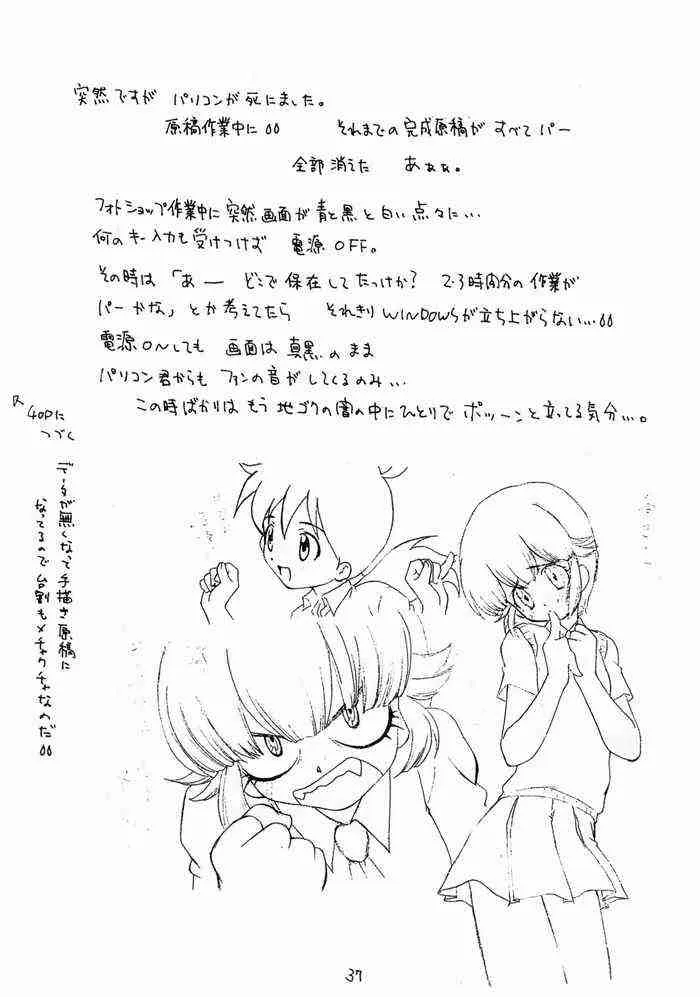 突然ですが パソコンが死にました。
原稿作業中に 〃 それまでの完成原稿が すべてパー
全部消えた あぁぁ。
フォトショップ作業中に突然画面が青と黒と白い点々に…
何のキー入力も受けつけず 電源OFF。
その時は「あー どこで保存してたっけか? 2・3時間分の作業が
パーかな」とか考えてたら それきりWINDOWSが立ち上がらない…
電源ONしても 画面は真黒のまま
パソコン君からも ファンの音がしてくるのみ…
この時ばかりは もう地ゴクの闇の中にひとりで ポツーンと立ってる気分…。
40Pに
つづく
データが無くなって手描き原稿に
なってるので台割もメチャクチャなのだ
37